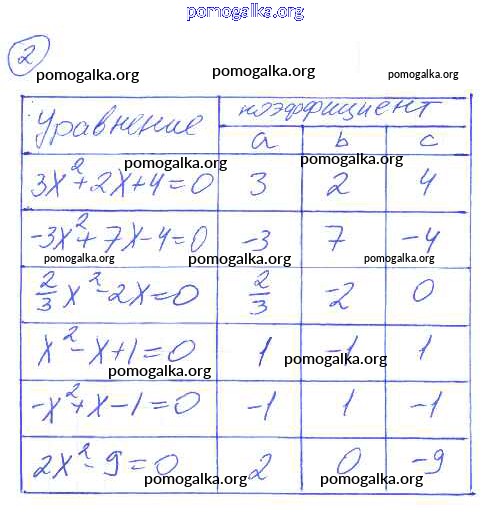 pomogalka.org
2
pomogalka.org pomogalka.org pomogalka.org
Уравнение коэффициент
a b c
pomogalka.org pomogalka.org
3x²+2x+4=0 3 2 4
-3x²+7x-4=0 -3 7 -4
pomogalka.org pomogalka.org pomogalka.org
2/3 x²-2x=0 2/3 -2 0
x²-x+1=0 1 -1 1
pomogalka.org pomogalka.org
-x²+x-1=0 -1 1 -1
pomogalka.org pomogalka.org
2x²-9=0 2 0 -9
pomogalka.org pomogalka.org pomogalka.org